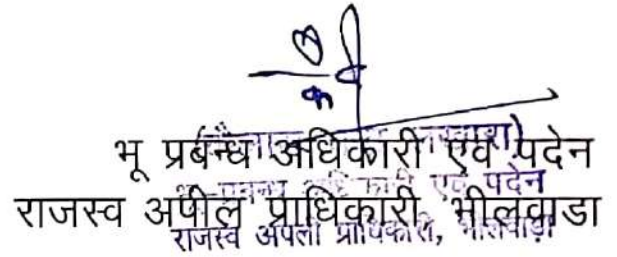 भू प्रबन्ध अधिकारी एवं पदेन
एवं पदेन
राजस्व अपील प्राधिकारी, भीलवाडा
राजस्व अपील प्राधिकारी, भीलवाड़ा